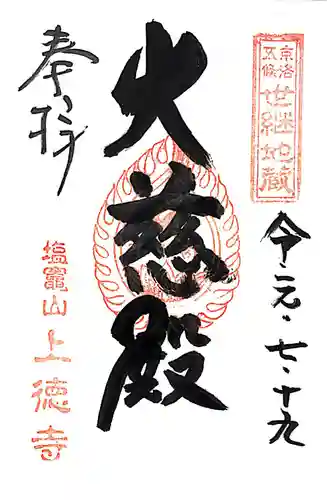 京洛
五條
世継地蔵
令元・七・十九
大慈殿
奉拝
塩竈山
上徳寺